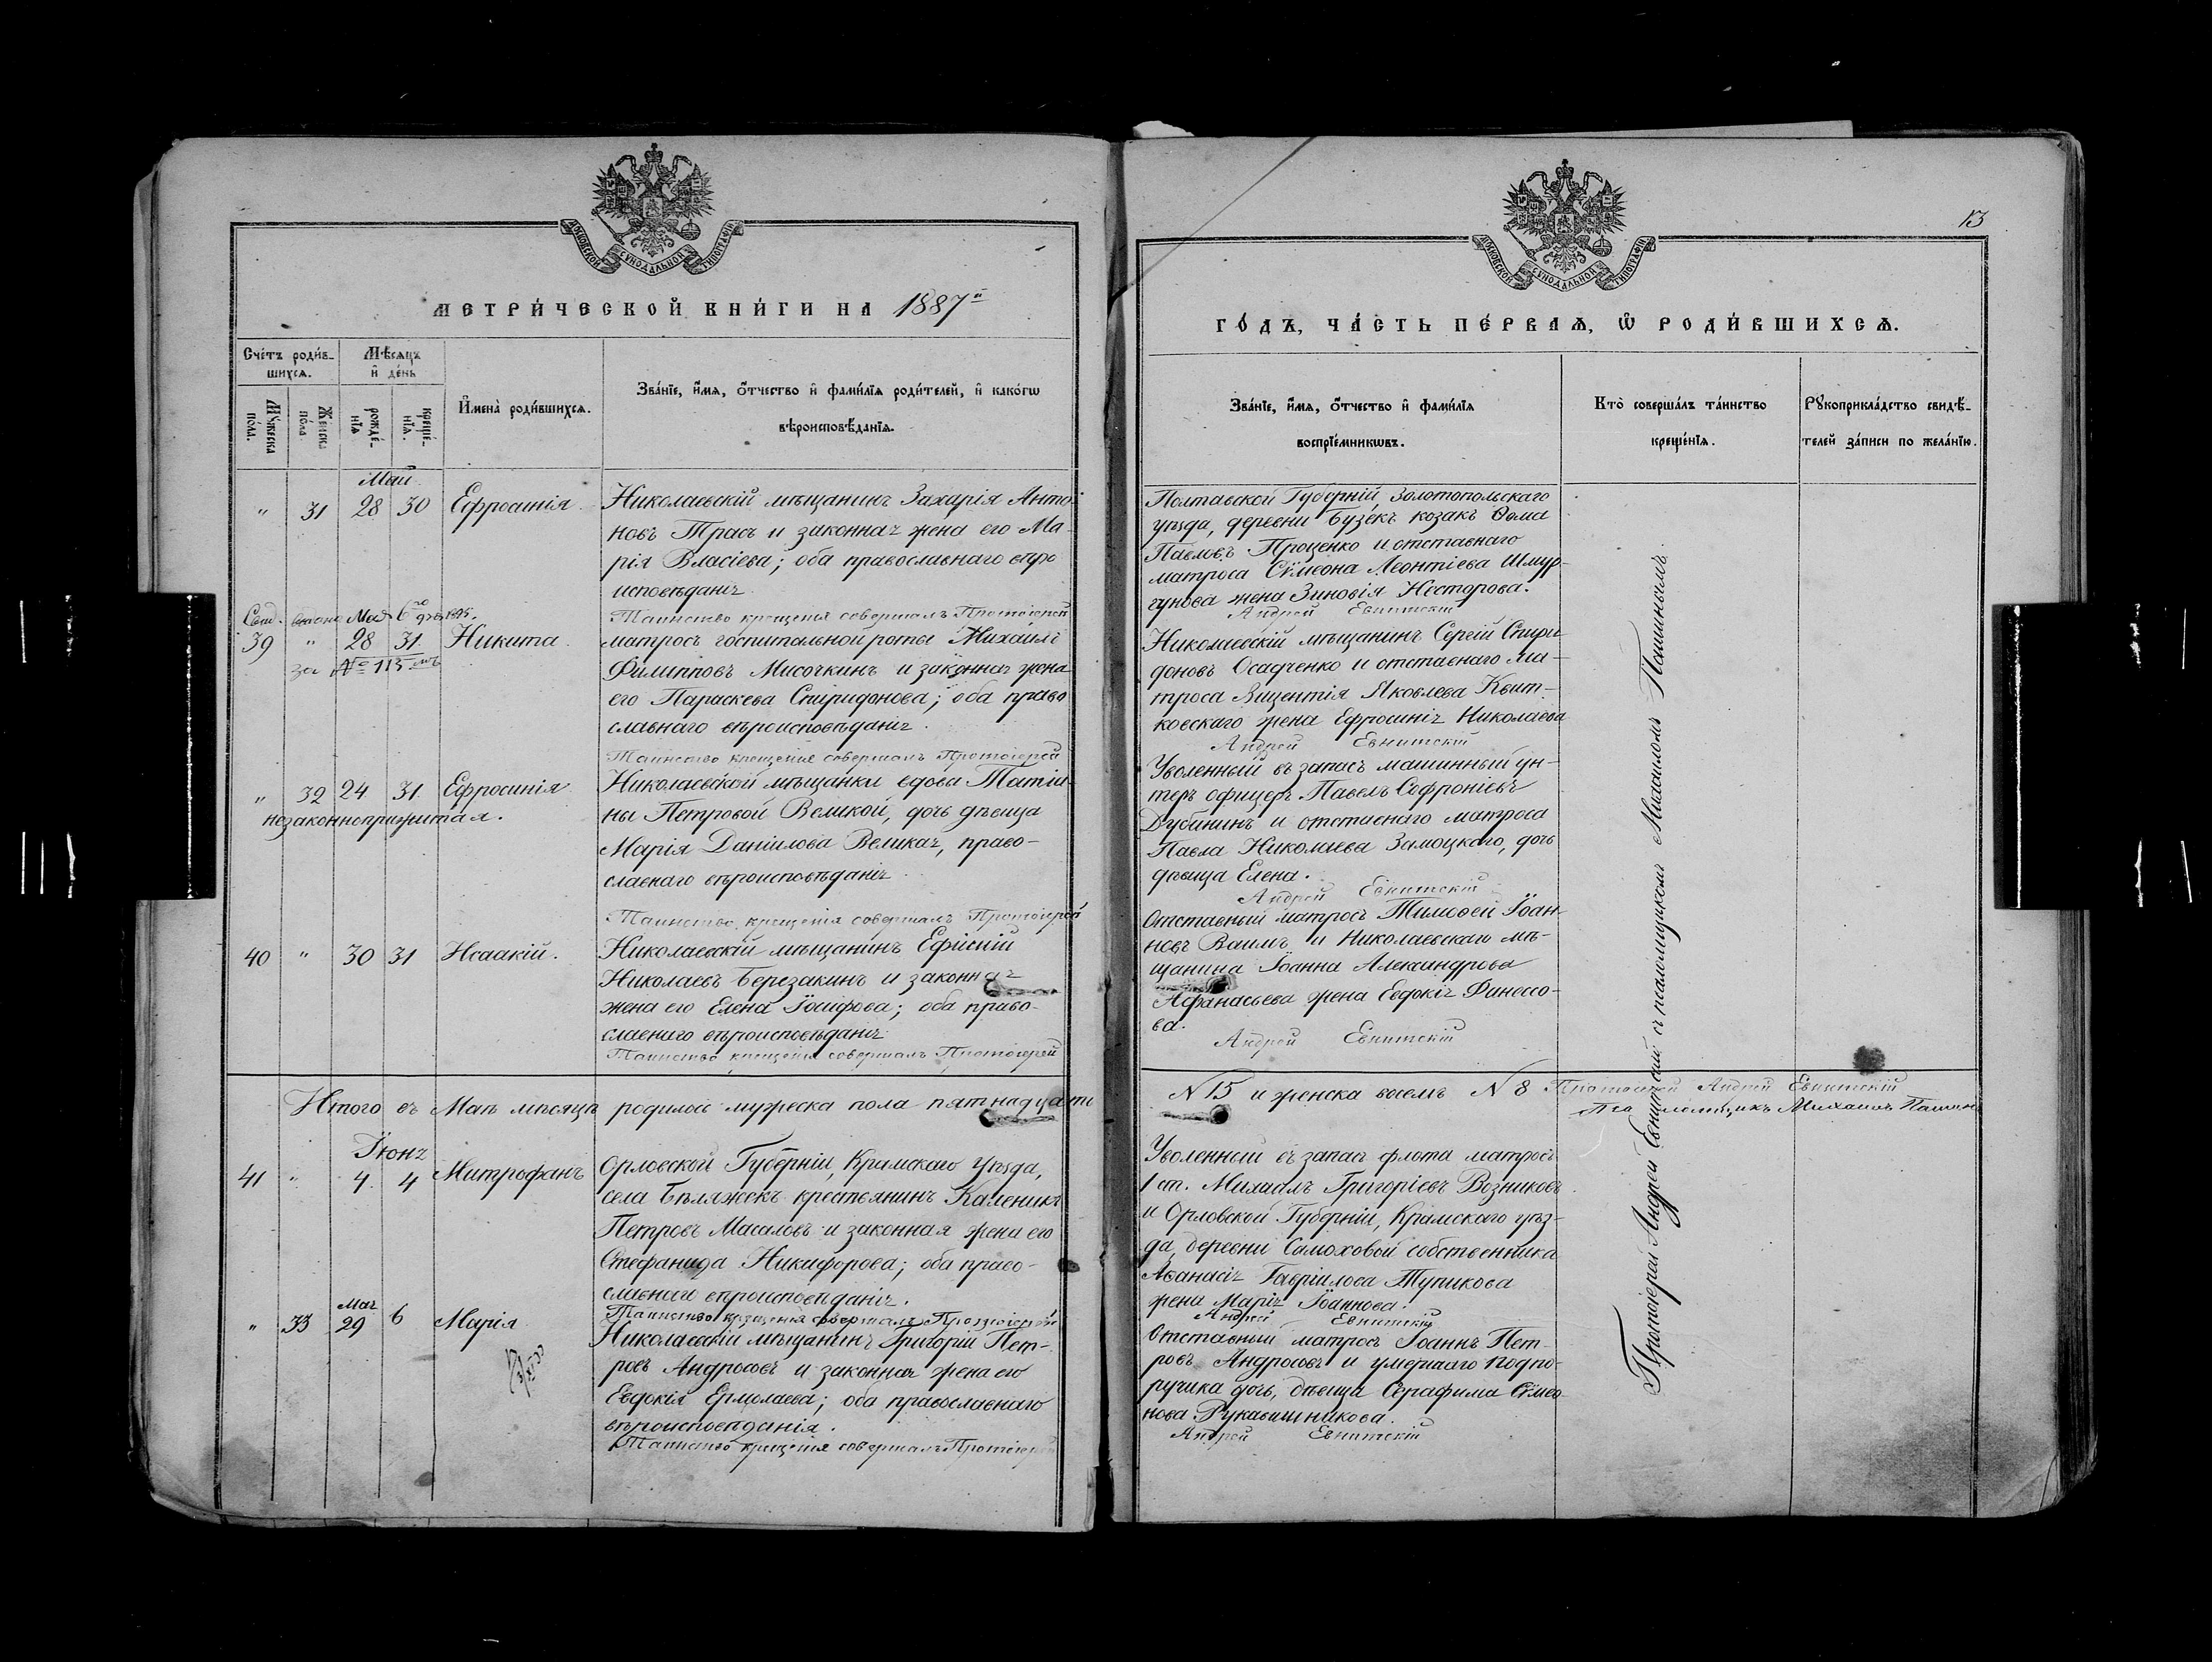 МОСКОВСКОЙ СѴНОДАЛЬНОЙ ТИПОГРАФІИ
МЕТРИ́ЧЕСКОЙ КНИ́ГИ НА 1887й
Сче́тъ роди́в-
шихсѧ.
Мѣ́сѧцъ
и҆ де́нь
Мꙋжеска по́ла.
Женска по́ла
рожде́-
нїѧ
креще́-
нїѧ.
И҆мена̀ роди́вшихсѧ.
Зва́нїе, и҆́мѧ, ѻ҆́тчество и҆ фами́лїѧ роди́телей, и҆ како́гѡ
вѣроисповѣ́данїѧ.
Май
" 31 28 30 Ефросинія. Николаевскій мѣщанинъ Захарія Анто-
новъ Трасъ и законная жена его Ма-
рія Власіева; оба православнаго вѣро
исповѣданія
Таинство крещенія совершалъ Протоіерей
Свид. выдано Мая 6го дня 1895.
39 " 28 31. Никита. матросъ госпитальной роты Михаилъ
за № 113мъ
Филипповъ Мисочкинъ и законная жена
его Параскева Спиридонова; оба право
славнаго вѣроисповѣданія.
Таинство крещенія совершалъ Протоіерей
" 32 24 31. Ефросинія Николаевской мѣщанки вдовы Татіа-
незаконноприжитая.
ны Петровой Великой, дочь дѣвица
Марія Даніилова Великая, право-
славнаго вѣроисповѣданія.
Таинство крещенія совершалъ Протоіерей
40 " 30 31 Исаакій. Николаевскій мѣщанинъ
Николаевъ Березакинъ и законная
жена его Елена Іосифова; оба право-
славнаго вѣроисповѣданія
Таинство крещенія совершалъ Протоіерей
Итого въ Маѣ мѣсяцѣ родилось мужеска пола пятнадцать
Іюнь
41 " 4. 4 Митрофанъ Орловской Губерніи, Крамскаго уѣзда,
села крестьянинъ Каленикъ
Петровъ Масаловъ и законная жена его
Стефанида Никифорова; оба право-
славнаго вѣроисповѣданія.
Таинство крещенія совершалъ Протоіерей
" 33 Мая 29 6 Марія Николаевскій мѣщанинъ Григорій Пет-
ровъ Андросовъ и законная жена его
Евдокія Ермолаева; оба православнаго
вѣроисповѣданія.
Таинство крещенія совершалъ Протоіерей
13
МОСКОВСКОЙ СѴНОДАЛЬНОЙ ТИПОГРАФІИ
ГО́ДЪ, ЧА́СТЬ ПЕ́РВАѦ, Ѽ РОДИ́ВШИХСѦ.
Зва́нїе, и҆́мѧ, ѻ҆́тчество и҆ фами́лїѧ
воспрїе́мникѡвъ.
Кто̀ соверша́лъ та́инство
креще́нїѧ.
Рꙋкоприкла́дство свидѣ́-
телей за́писи по жела́нїю.
Полтавской Губерній, Золотопольскаго
уѣзда, деревни Бузекъ козакъ Ѳома
Павловъ Проценко и отставнаго
матроса Сѵмеона Леонтіева Шмур-
гунова жена Зиновія Несторова.
Андрей Евнитскій
Николаевскій мѣщанинъ Сергій Спири
доновъ Осадченко и отставнаго ма-
троса Викентія Яковлева Квит-
ковскаго жена Ефросинія Николаева
Андрей Евнитскій
Уволенный въ запасъ машинный ун-
теръ офицеръ Павелъ Софроніевъ
Дубининъ и отставнаго матроса
Павла Николаева Замоцкаго, дочь
дѣвица Елена.
Андрей Евнитскій
Отставный матросъ Тимоѳей Іоан-
новъ и Николаевскаго мѣ-
щанина Іоанна Александрова
Афанасьева жена Евдокія
ва.
Андрей Евнитскій
№ 15 и женска восемь № 8 Протоіерей Андрей Евнитскій
Псаломщикъ Михаилъ Пашинъ
Уволенный въ запасъ флота матросъ
1 ст. Михаилъ Григоріевъ Возниковъ
и Орловской Губерніи, Крамскаго уѣз-
да, деревни Самоховой собственника
Аѳанасія Гавріилова Тупикова
жена Марія Іоаннова.
Андрей Евнитскій
Отставный матросъ Іоаннъ Пет-
ровъ Андросовъ и умершаго подпо-
ручика дочь, дѣвица Серафима Сѵмео
нова Рукавишникова.
Андрей Евнитскій
Протоіерей Андрей Евнитскій съ псаломщикомъ Михаиломъ Пашинымъ.